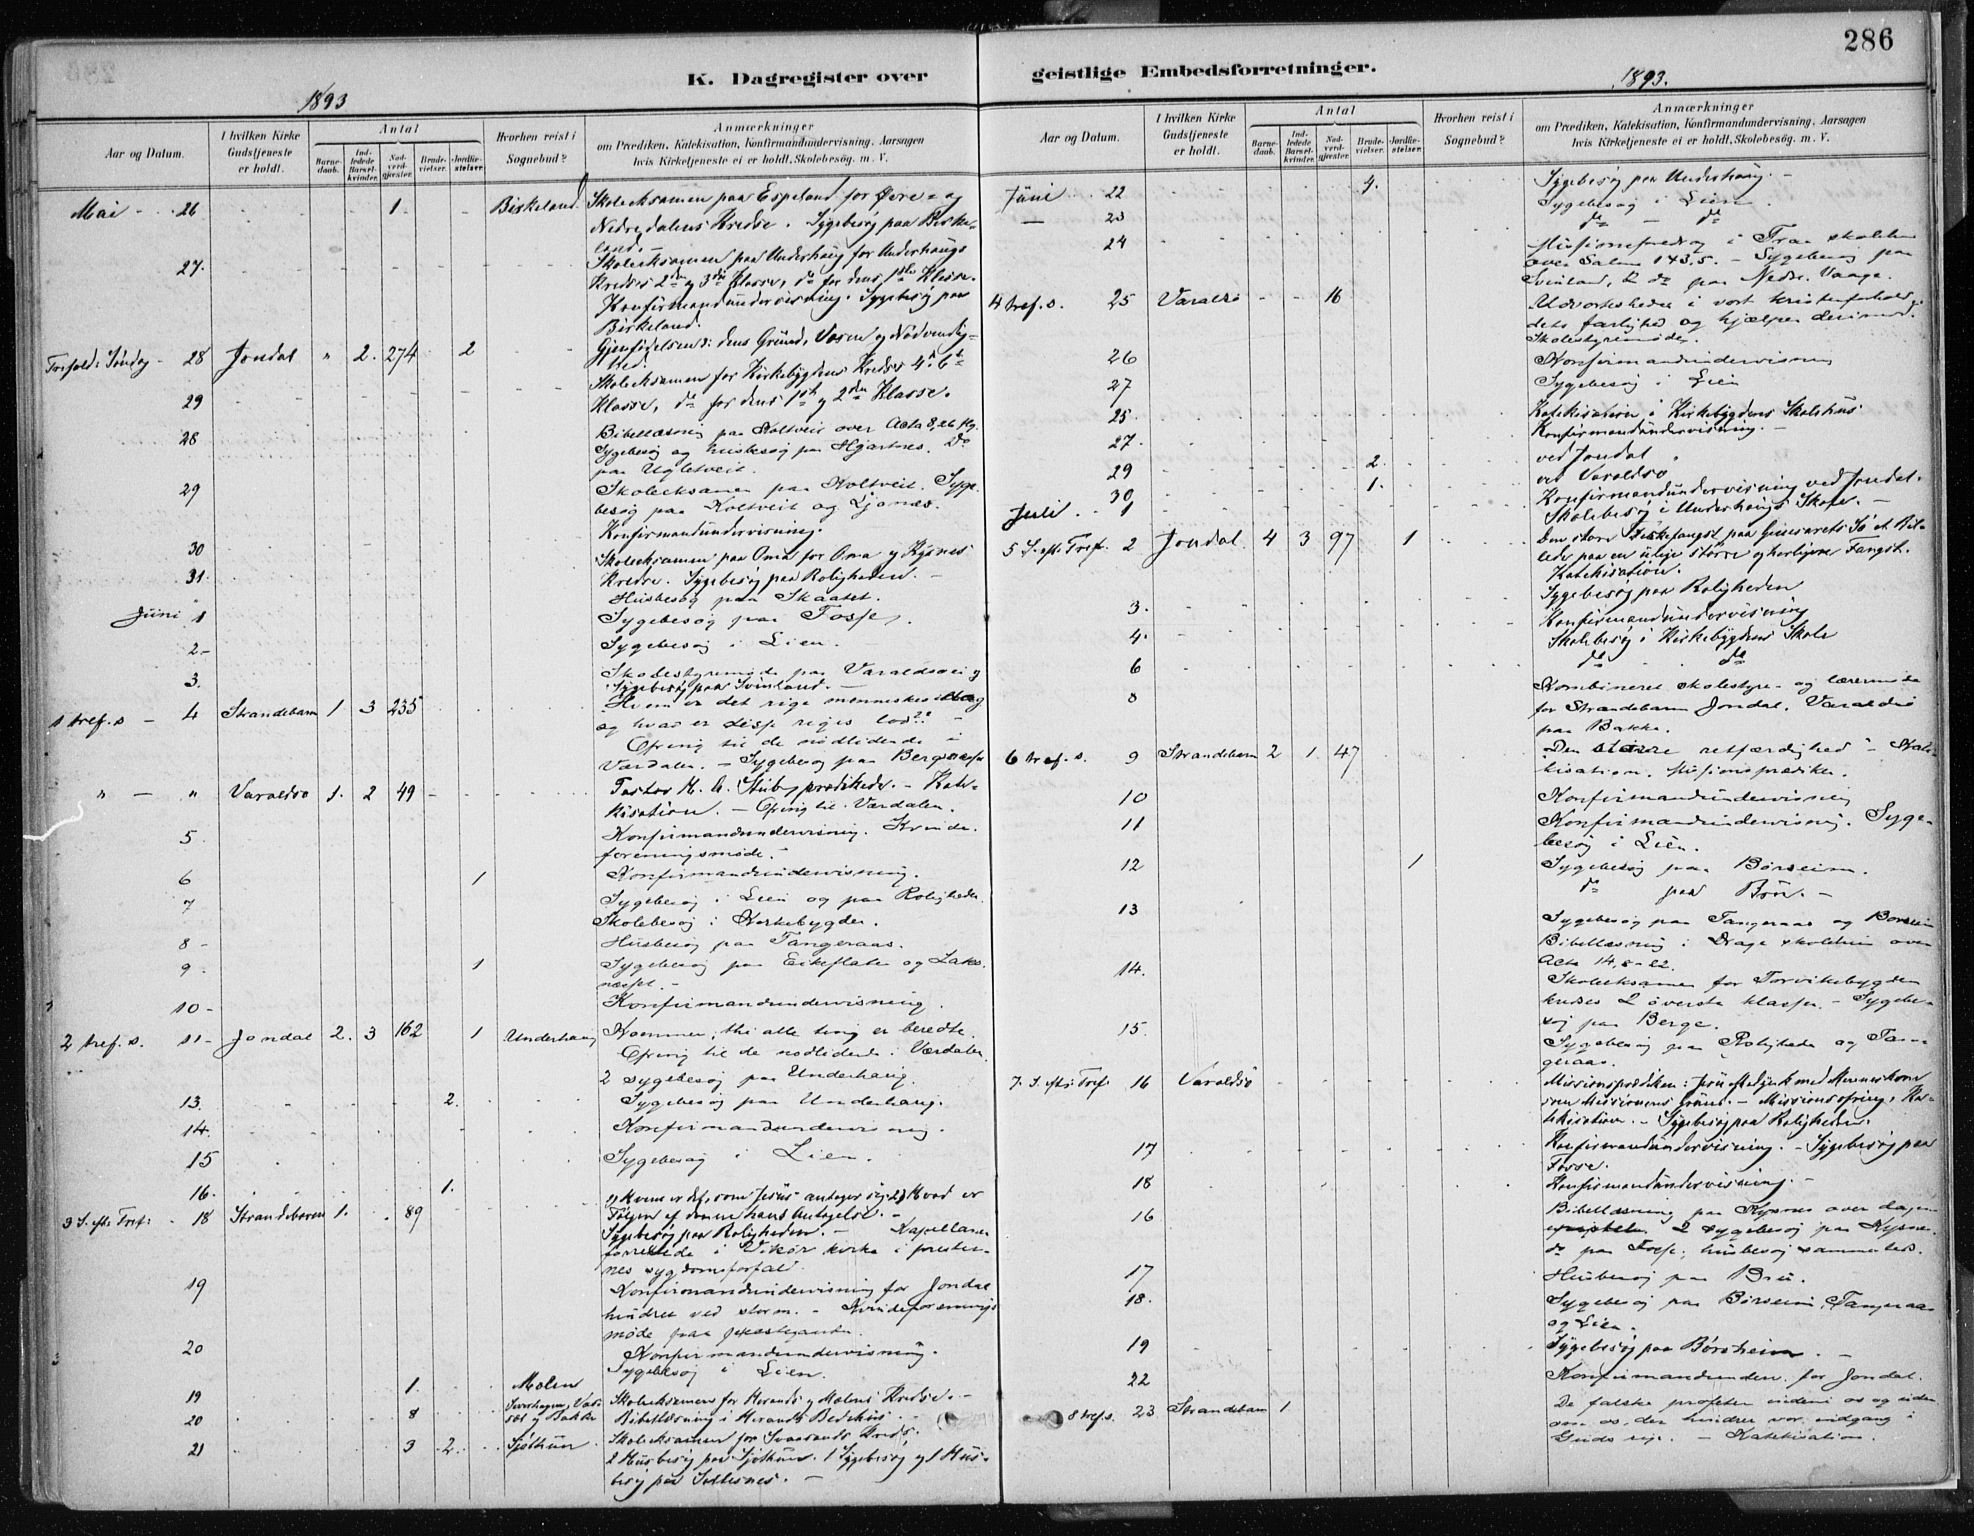 286
K. Dagregister over
1893
Aar og Datum.
I hvilken Kirke Gudstjeneste er holdt.
Antal
Barne-daab.
Ind-ledede Barsel-kvinder.
Nad-verd-gjester.
Brude-vielser.
Jordfæ-stelser.
Hvorhen reist i Sognebud?
Anmærkninger
om Prædiken, Katekisation, Konfirmandundervisning, Aarsagen
hvis Kirketjeneste ei er holdt, Skolebesög. m. V.
Mai 26 1 Birkeland Skoleeksamen paa Espeland for Övre- og
Nedredalens Kredse. Sygebesög paa Birke-
land.
27. Skoleeksamen paa Underhaug for Underhaugs
Kredses 2den og 3die Klasse, do for dens 1ste Klasse.
Konfirmandundervisning. Sygebesög paa
Birkeland.
Trefold: Söndag 28 Jondal " 2. 274 2 Gjenfödelsen: dens Grund, Væsen og Nödvendig-
hed.
29 Skoleeksamen for Kirkebygdens Kredses
Klasse, do for dens 1ste og 2den Klasse.
28 Bibellæsning paa Koltveit over Acta 8,26 flg.
Sygebesög og husbesög paa Hjartnes. Do
paa Ugletveit.
29 Skoleeksamen paa Koltveit. Syge-
besög paa Koltveit og Ljonæs.
Konfirmandundervisning.
30 Skoleeksamen paa Oma for Oma og Kysnes
31. Kredse. Sygebesög paa Roligheden.
Husbesög paa Skaatet.
Juni 1 Sygebesög paa Fosse.
2.- Sygebesög i Lien.
3. Skolestyremöde paa Varaldsöi og
Sygebesög paa Svinland.
1 tref. s. 4 Strandebarm 1 3 235 Hvem er det rige menneske idag
og hvad er disse riges lod??
Ofring til de nödlidende i
Værdalen. - Sygebesög paa
" - " Varaldsö 1. 2 49 Pastor prædikede. - Kate-
kisation. - Ofring til Værdalen.
5. Konfirmandundervisning. Kvinde-
foreningsmöde.
6 1 Konfirmandundervisning.
7 Sygebesög i Lien og paa Roligheden
Skolebesög i Kirkebygden.
8 - Husbesög paa Tangeraas.
9 - 1 Sygebesög paa Eikeflaten og Laks-
næsset.
10- Konfirmandundervisning.
2 tref. s. 11- Jondal 2. 3 162 1 Underhaug Kommer, thi alle ting er beredte.
Ofring til de nödlidende i Værdalen.
2 sygebesög paa Underhaug.
13. 2. Sygebesög paa Underhaug.
14. Konfirmandundervisning.
15 Sygebesög i Lien.
16. 1.
3 S. eft. Tref: 18 Strandebarm 1. 89 1) Hvem er det, som Jesus antager sig 2) Hvad er
Fölgen af denne hans Antagelse. -
Sygebesög paa Roligheden. - Kapellanen
forrettede i Vikör kirke i prester-
nes sygdomsforfald.
19 Konfirmandundervisning for Jondal
hindret ved storm. - Kvindeforenings-
möde paa prestegaarden.
20 Konfirmandundervisning.
Sygebesög i Lien.
19 1. Molen Skoleeksamen for Herands og Molens Kredse. -
20 8 og Bakke Bibellæsning i Herands Bedehus.
21 3 2. Sjöthun Skoleeksamen for Kreds.
2 Husbesög paa Sjöthun. 1 Sygebesög og 1 Hus-
besög paa
geistlige Embedsforretninger.
1893.
Aar og Datum.
I hvilken Kirke Gudstjeneste er holdt.
Antal
Barne-daab.
Ind-ledede Barsel-kvinder.
Nad-verd-gjester.
Brude-vielser.
Jordfæ-stelser.
Hvorhen reist i Sognebud?
Anmærkninger
om Prædiken, Katekisation, Konfirmandundervisning, Aarsagen
hvis Kirketjeneste ei er holdt, Skolebesög. m. V.
Juni 22 4. Sygebesög paa Underhaug. -
- 23 Sygebesög i Lien.
do - do
24 Missionsforedrag i Traa skolehus
over Salme 143,5. - Sygebesög paa
Svinland, & do paa Nedr. Vaage.
4 tref. s. 25 Varaldsö - - 16 Udvorteshed i vort kristenforhold,
dets farlighed og hjælpen derimod.
Skolestyremöde.
26 Konfirmandundervisning
27 Sygebesög i Lien
25 Katekisation i Kirkebygdens Skolehus
27. Konfirmandundervisning. -
29 2. ved Jondal
30 1. ved Varaldsö
Juli 1 Konfirmandundervisning ved Jondal.
Skolebesög i Underhaugs Skole. -
5 S. eft. Tref. 2 Jondal 4 3 97 1 Den store Fiskefangst paa Genesarets Sö et Bil-
lede paa en langt större og herligere Fangst.
Katekisation.
3. Sygebesög paa Roligheden
Konfirmandundervisning
4. Skolebesög i Kirkebygdens Skole
6 do - do
8 Kombineret skolestyre- og læreremöde
for Strandebarm, Jondal, Varaldsö
paa Bakke.
6 tref. s. 9 Strandebarm 2 1 47 "Den större retfærdighed" - Kate-
kisation. Missionsprædiken.
10 Konfirmandundervisning
11 Konfirmandundervisning. Syge-
besög i Lien.
12 1 Sygebesög paa Börseim.
do paa Bru. -
13 Sygebesög paa Tangeraas og Börseim
Bibellæsning i Drage skolehus over
Acta 14, 8-22.
14. Skoleeksamen for Torvikebygden
kredses 2 överste klasser. - Sygebe-
sög paa Berge.
15. Sygebesög paa Roligheden og Tan-
geraas.
7. S. eft. Tref. 16 Varaldsö Missionsprædiken: Jesu Medynk med Menneskene
som Missionens Grund. - Missionsofring. Ka-
tekisation. - Sygebesög paa Roligheden.
17 Konfirmandundervisning. - Sygebesög paa
Fosse.
18 Konfirmandundervisning. -
16 Bibellæsning paa Kysnes over dagens
epistel. 2 sygebesög paa Kysnes.
do paa Fosse; husbesög sammesteds.
17 Husbesög paa Bru.
18. Sygebesög paa Börseim, Tangeraas
og Lien.
19 Sygebesög paa Börsheim. -
22 Konfirmandunden. for Jondal.
8 tref. s. 23 Strandebarm 1 De falske profeter indeni os og uden
om os, der hindrer vor indgang i
Guds rige. - Katekisation.